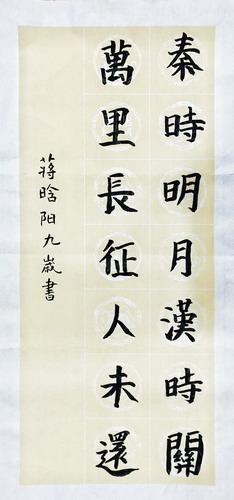 秦時明月漢時關
萬里長征人未還
蔣晗阳九歲書